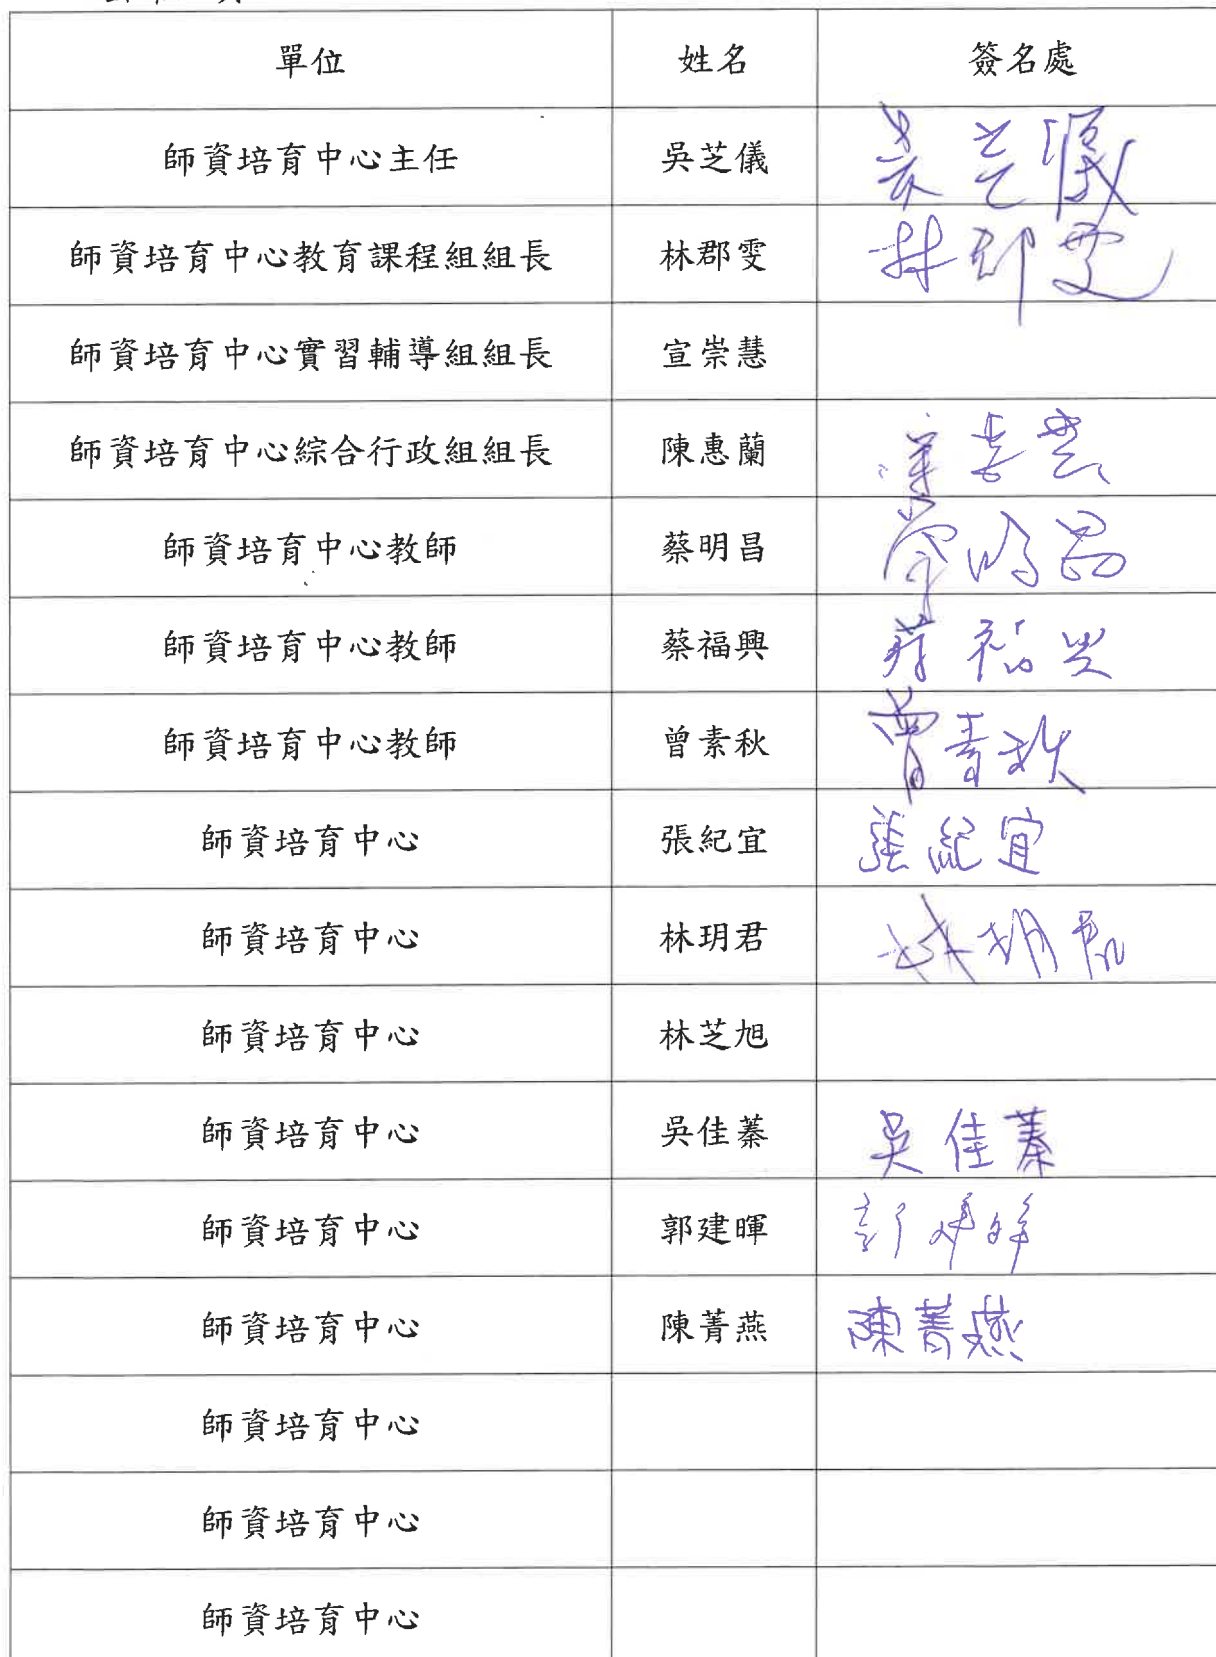 單位 姓名 簽名處
師資培育中心主任 吳芝儀 吳芝儀
師資培育中心教育課程組組長 林郡雯 林郡雯
師資培育中心實習輔導組組長 宣崇慧
師資培育中心綜合行政組組長 陳惠蘭
師資培育中心教師 蔡明昌 蔡明昌
師資培育中心教師 蔡福興 蔡福興
師資培育中心教師 曾素秋 曾素秋
師資培育中心 張紀宜 張紀宜
師資培育中心 林玥君 林玥君
師資培育中心 林芝旭
師資培育中心 吳佳蓁 吳佳蓁
師資培育中心 郭建暉 郭建暉
師資培育中心 陳菁燕 陳菁燕
師資培育中心
師資培育中心
師資培育中心